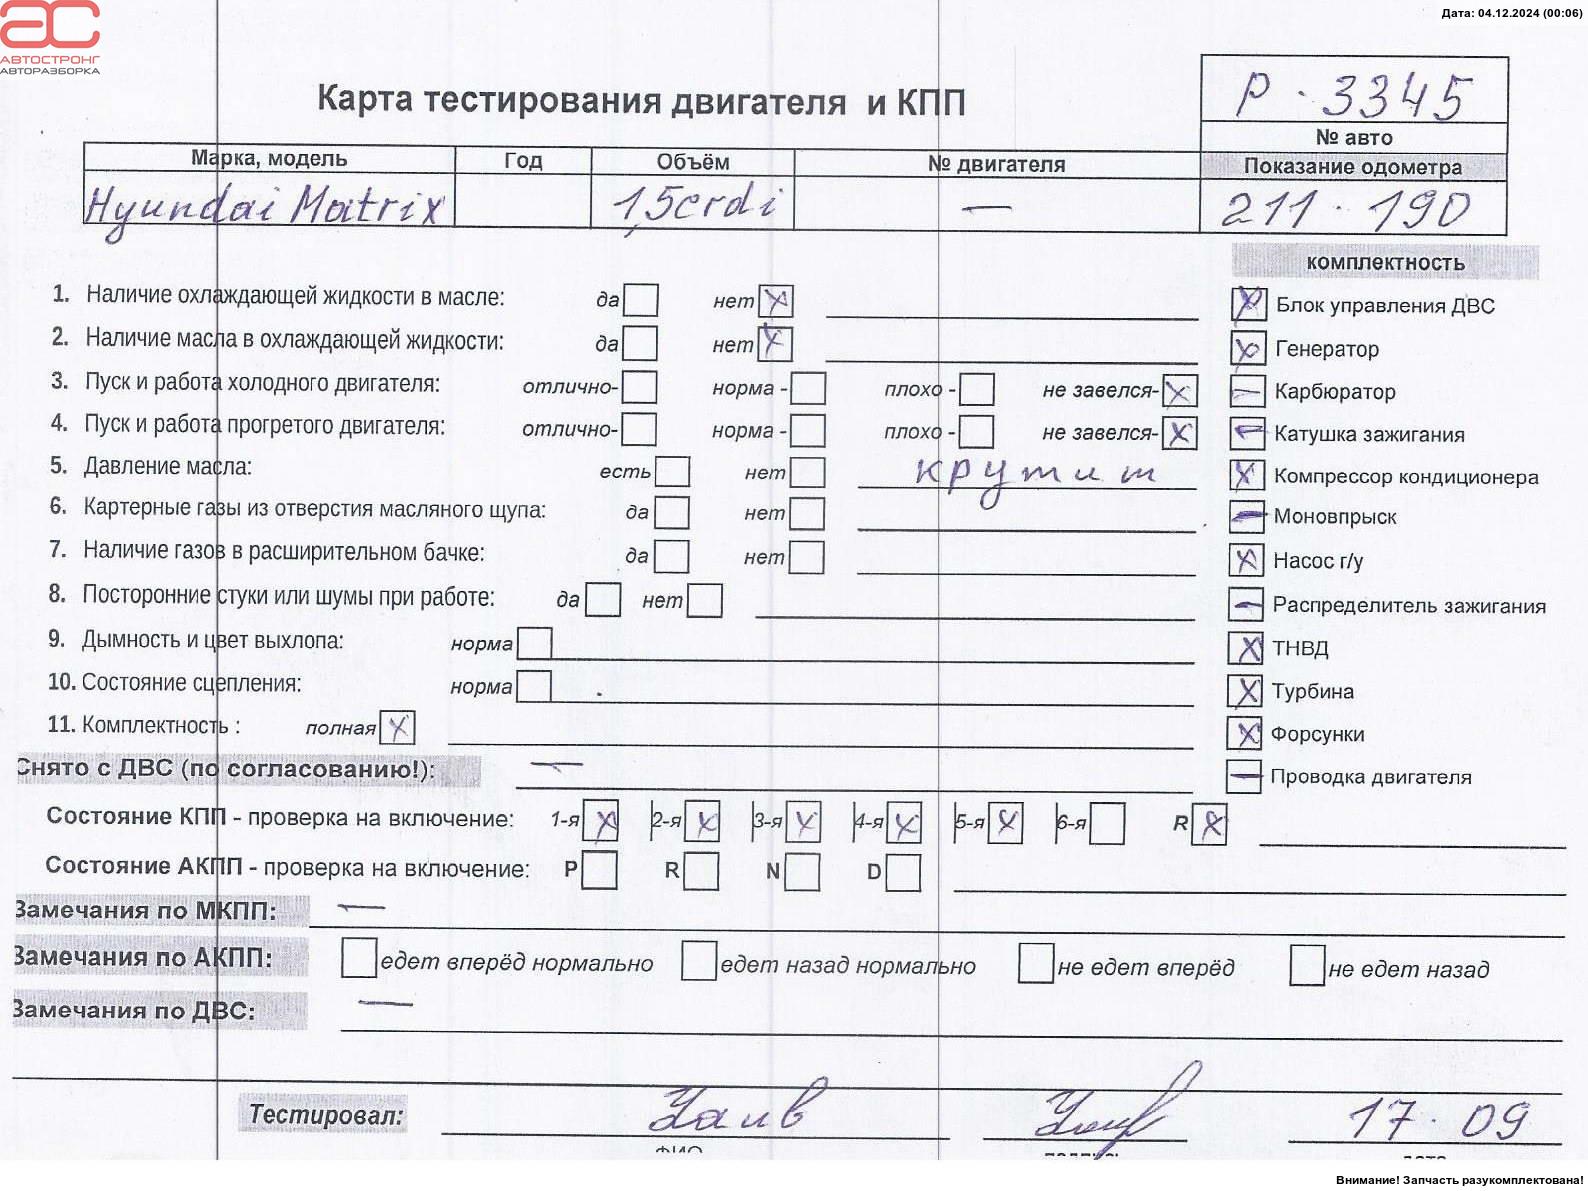 Дата: 04.12.2024 (00:06)
АС
АВТОСТРОНГ
АВТОРАЗБОРКА
Карта тестирования двигателя и КПП
Р · 3345
№ авто
Марка, модель Год Объём № двигателя Показание одометра
Hyundai Matrix 1,5crdi — 211 · 190
комплектность
1. Наличие охлаждающей жидкости в масле: да нет X
X Блок управления ДВС
2. Наличие масла в охлаждающей жидкости: да нет X
X Генератор
3. Пуск и работа холодного двигателя: отлично- норма - плохо - не завелся- X
— Карбюратор
4. Пуск и работа прогретого двигателя: отлично- норма - плохо - не завелся- X
— Катушка зажигания
5. Давление масла: есть нет крутит
X Компрессор кондиционера
6. Картерные газы из отверстия масляного щупа: да нет
— Моновпрыск
7. Наличие газов в расширительном бачке: да нет
X Насос г/у
8. Посторонние стуки или шумы при работе: да нет
— Распределитель зажигания
9. Дымность и цвет выхлопа: норма
X ТНВД
10. Состояние сцепления: норма
X Турбина
11. Комплектность : полная X
X Форсунки
Снято с ДВС (по согласованию!): —
— Проводка двигателя
Состояние КПП - проверка на включение: 1-я X 2-я X 3-я X 4-я X 5-я X 6-я R X
Состояние АКПП - проверка на включение: P R N D
Замечания по МКПП: —
Замечания по АКПП: едет вперёд нормально едет назад нормально не едет вперёд не едет назад
Замечания по ДВС: —
Тестировал: 17 · 09
ФИО подпись дата
Внимание! Запчасть разукомплектована!